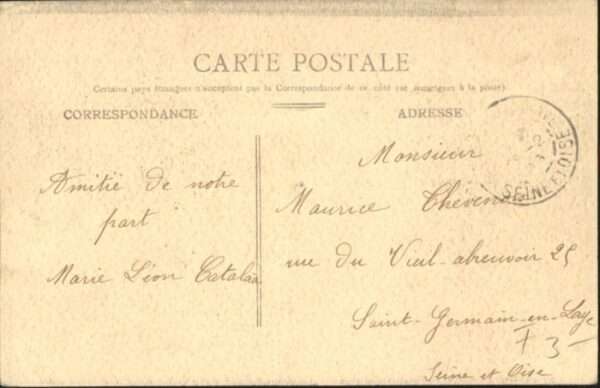 CARTE POSTALE
Certains pays étrangers n'acceptent pas la Correspondance de ce côté (se renseigner à la poste).
CORRESPONDANCE
Amitié de notre
part
Marie Léon Catalaa
ADRESSE
Monsieur
Maurice
rue du Vieil-abreuvoir 25
Saint-Germain-en-Laye
Seine et Oise
+ 3 -
SEINE-ET-OISE